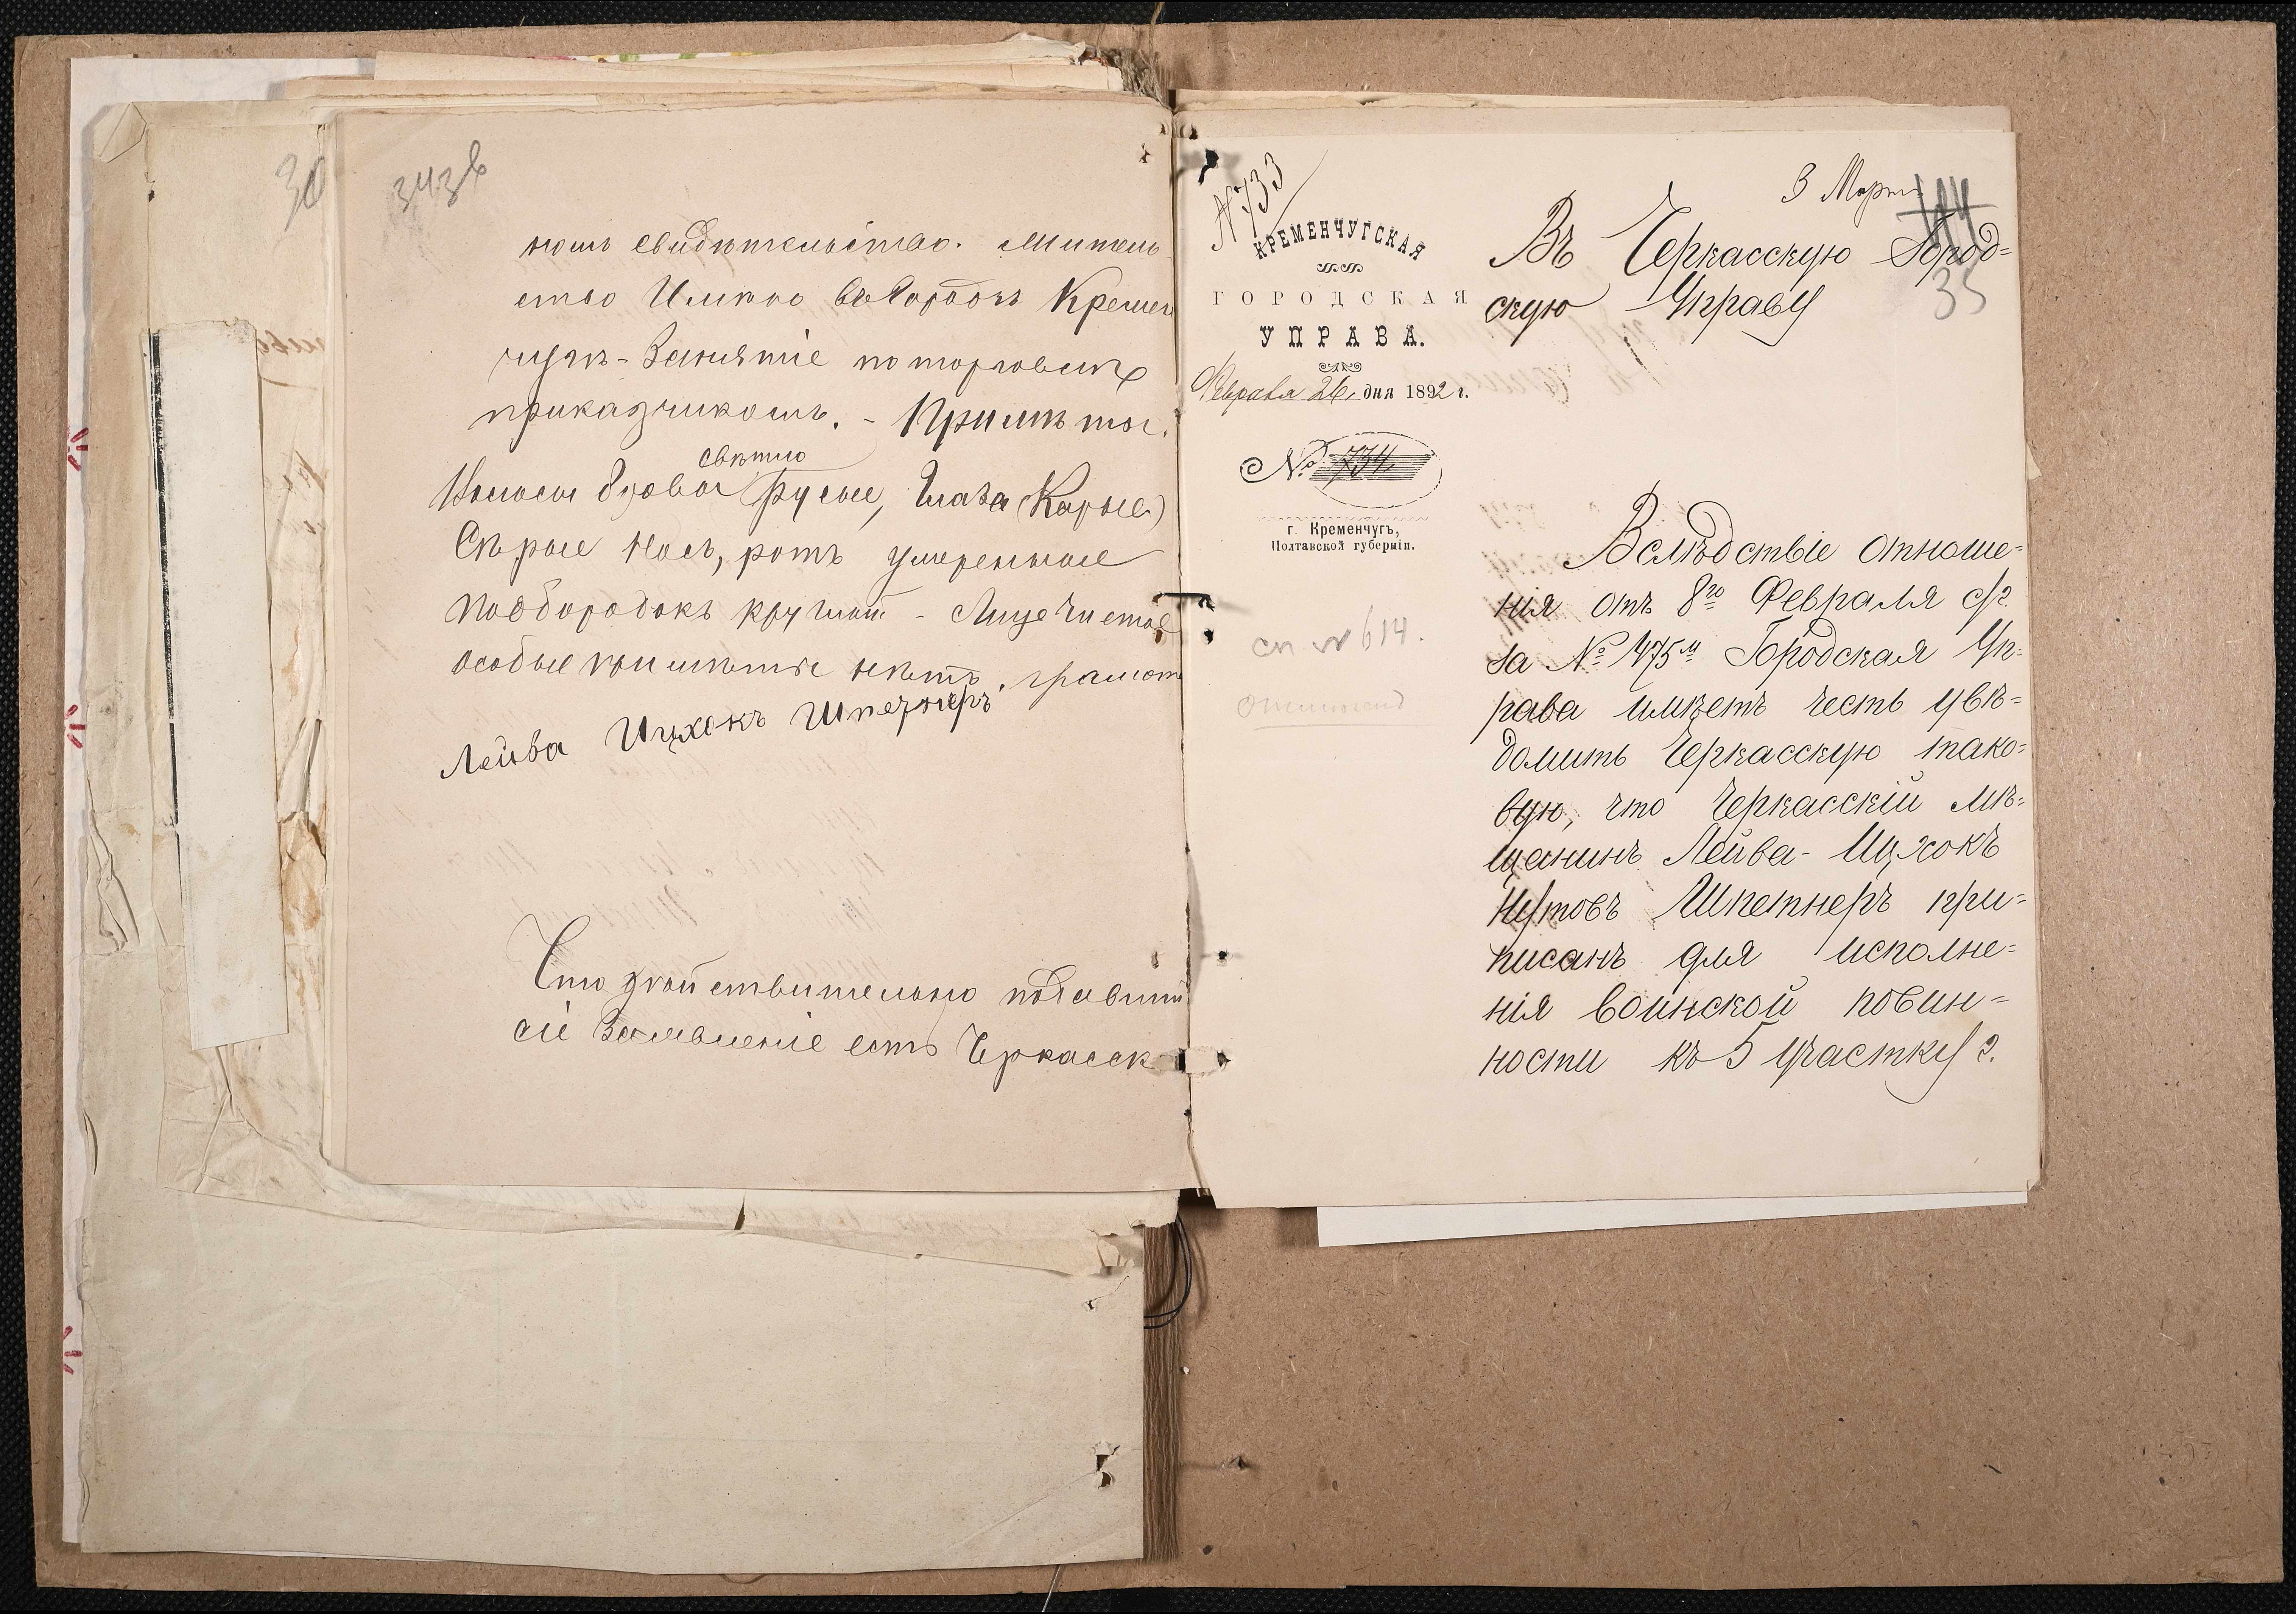 30
343 в
номъ свидѣтельство. Житель
ство Имѣю въ Городѣ Кремен
чугѣ - Занятіе по торговлѣ
приказчикомъ. - Примѣты.
свѣтло
Волосы брови русые, Глаза (Карые)
Сѣрые Носъ, ротъ умеренные
Подбородокъ круглый - Лице Чистое
особые примѣты нѣтъ. грамот
Лейва Ицхокъ Шпетнеръ
Что дѣйствительно подавшій
сіе Заявленіе есть Черкасск
N 733
КРЕМЕНЧУГСКАЯ
ГОРОДСКАЯ
УПРАВА.
Февраля 26 дня 1892 г.
№ 734
г. Кременчугъ,
Полтавской губерніи.
сп № 614.
3 Марта
35
Въ Черкасскую Город=
скую Управу
Вслѣдствіе отноше=
нія отъ 8го Февраля с/г.
за № 475м Городская Уп=
рава имѣетъ честь увѣ=
домить Черкасскую тако=
вую, что Черкасскій мѣ=
щанинъ Лейва-Ицхокъ
Нутовъ Шпетнеръ при=
писанъ для исполне=
нія воинской повин=
ности къ 5 участку г.